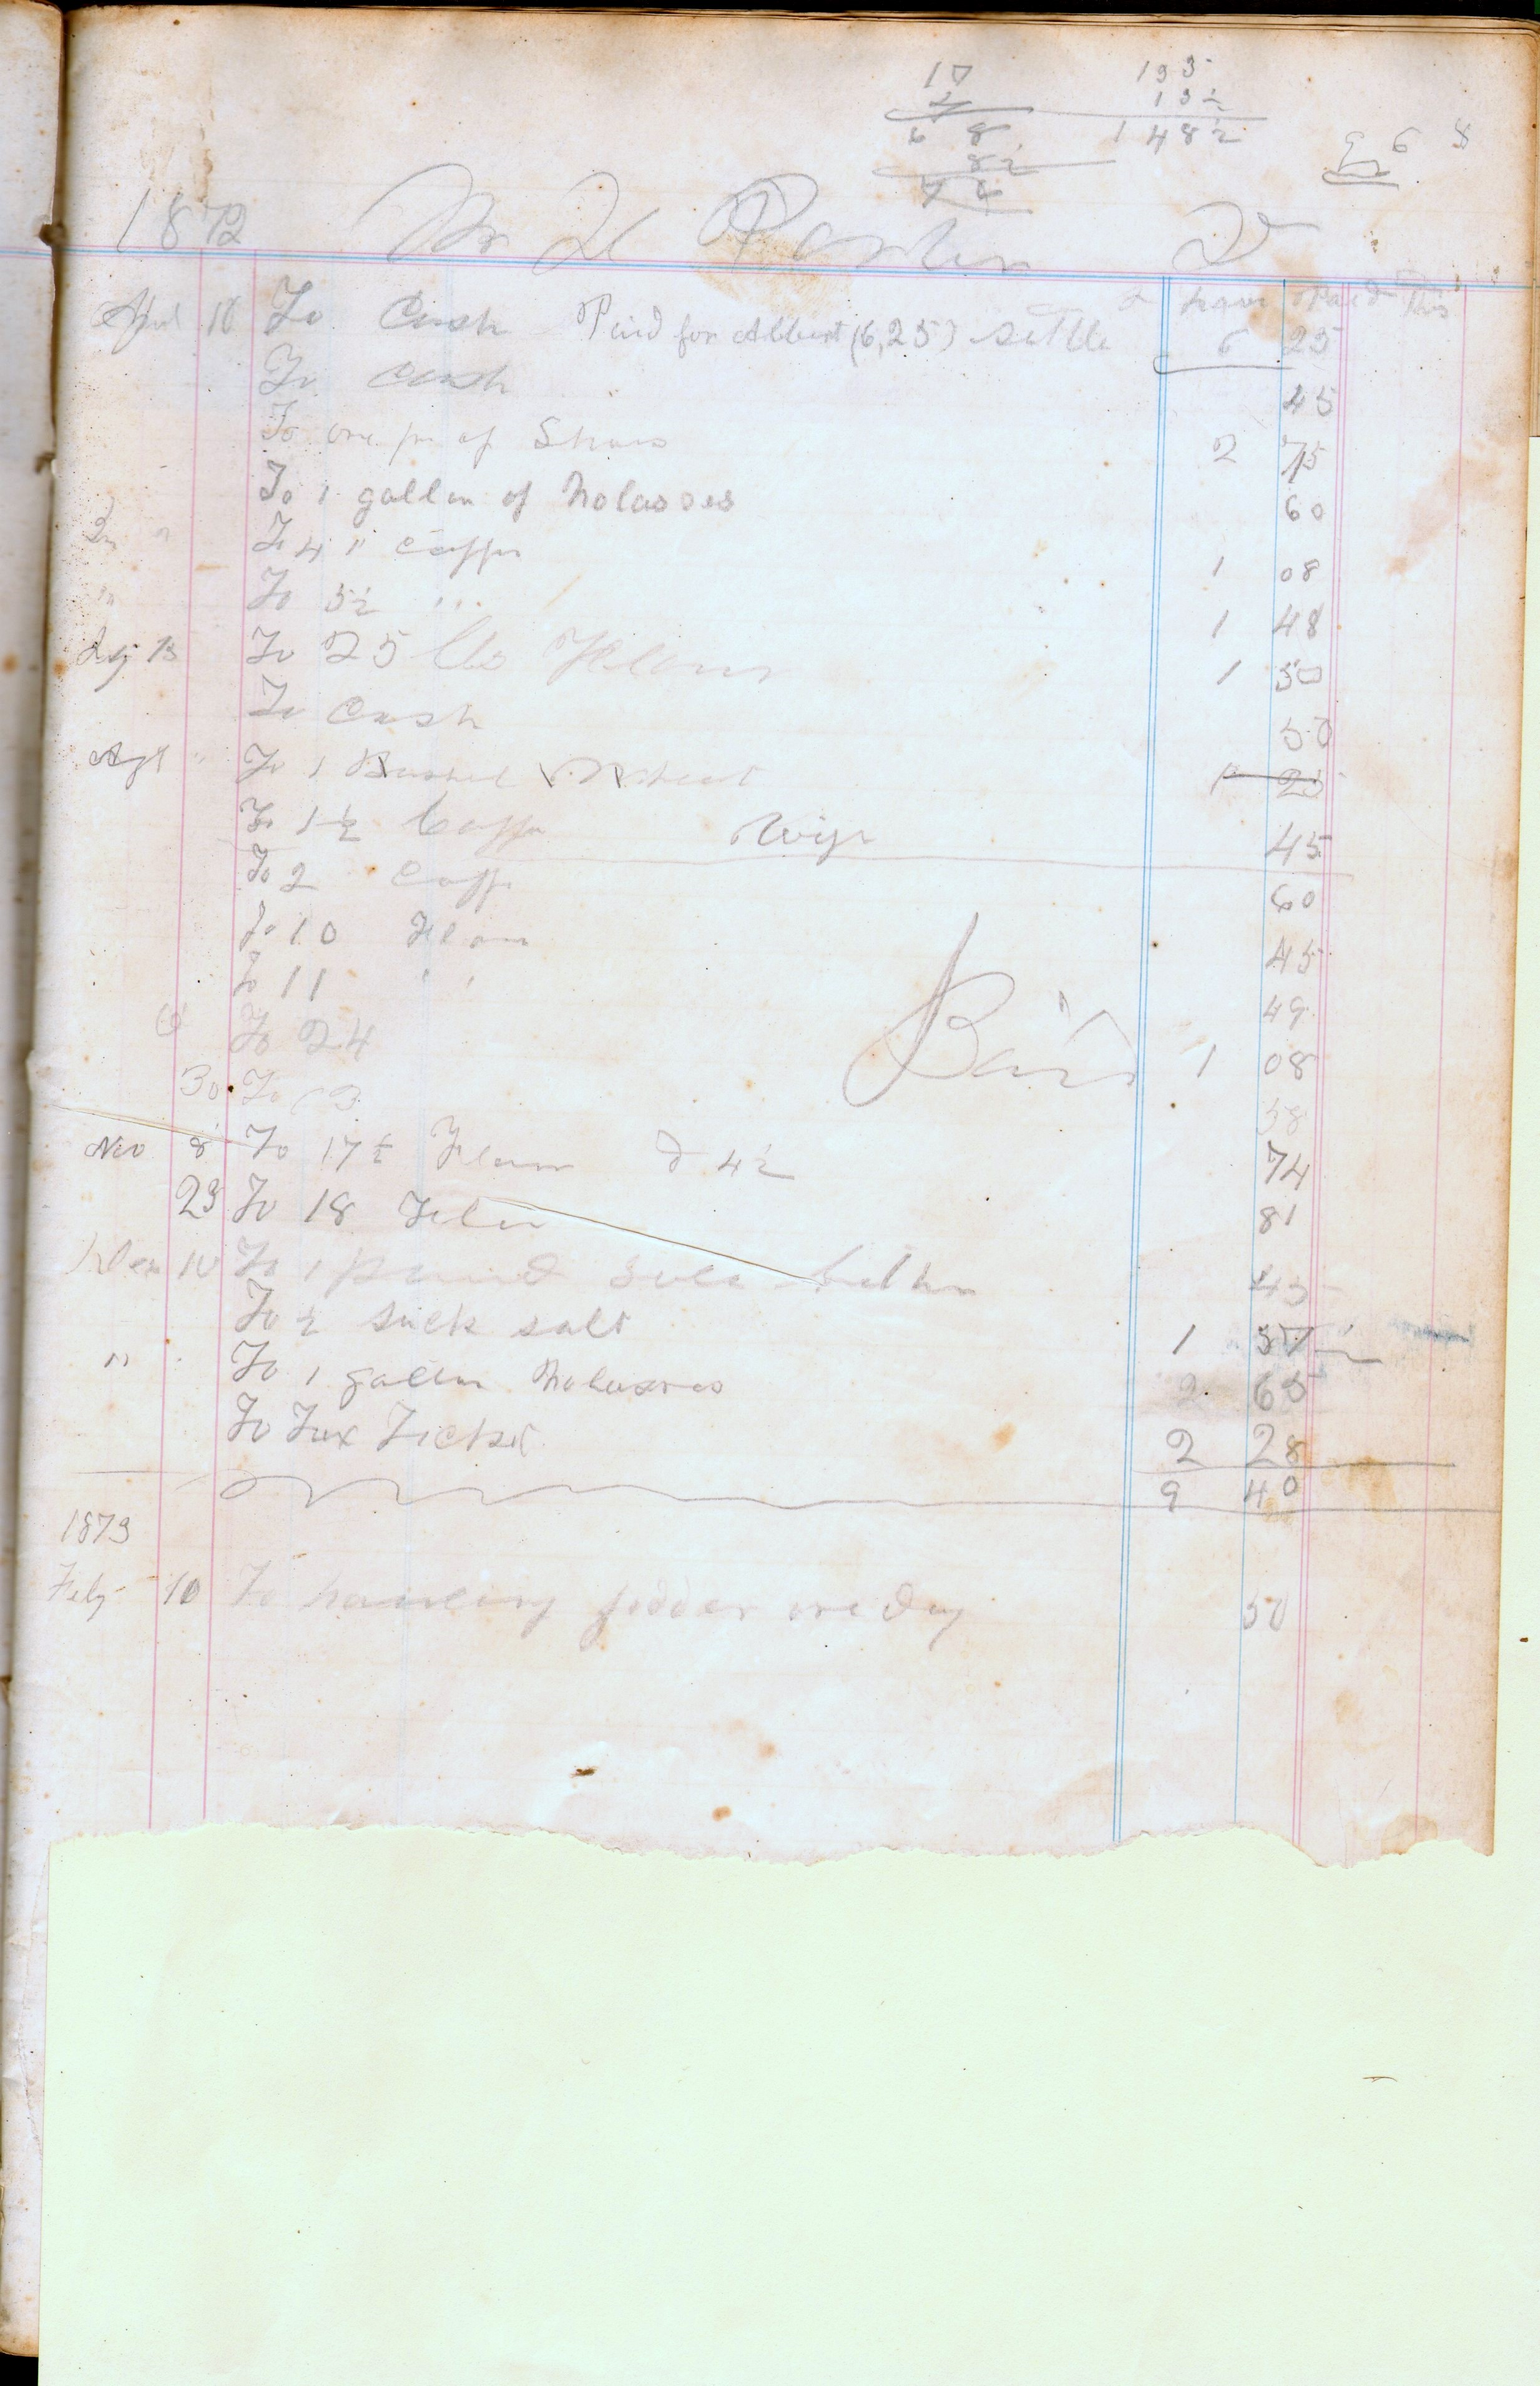 17 193
4 13½
6 8 1 48½
8½ 9 6 8
7 6
1872 Mr H Porter Dr
I have Paid This
Aprl 10 To Cash Paid for Albert (6,25) settle 6 25
To Cash 45
To one pr of Shoes 2 75
To 1 gallon of Molasses 60
To 4 " Coffe 1 08
" To 5½ " 1 48
July 13 To 25 lbs Flour 1 50
To Cash 50
Agt " To 1 Bushel Wheat 1 25
To 1½ Coffe 45
To 2 Coffe 60
To 10 Flour 45
To 11 " 49
To 24 1 08
Paid
30 To 13 58
Nov 8 To 17½ Flour 4½ 74
23 To 18 Flour 81
Dec 10 To 1 pound sole lether 45
To ½ sack salt 1 37½
" To 1 gallon Molasses 65
To Tax Ticket 2 28
9 40
1873
Feby 10 To hauling fodder one day 50